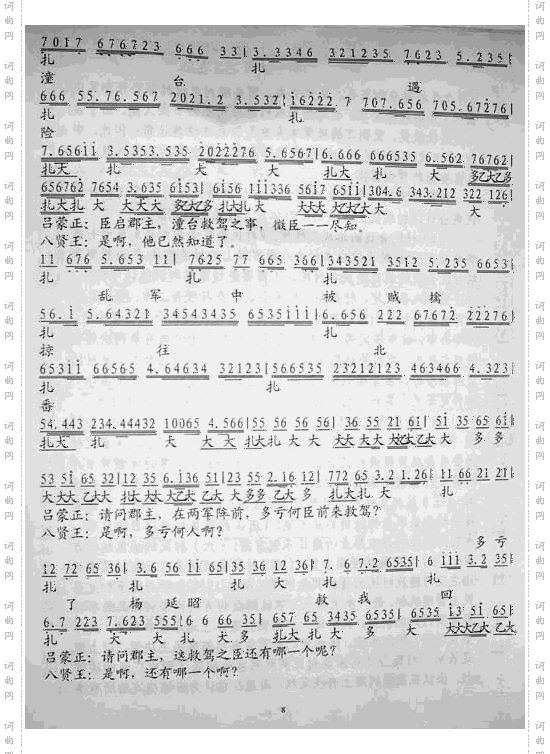 7017 676723 666 33|3.3346 321235 7623 5.235|
扎 扎
潼 台 遇
666 55.76.567 2021.2 3.532|16222 7 707.656 705.67276|
扎 扎
险
7.65611 3.5353.535 2022276 5.6567|6.666 666535 6.562 76762|
扎大 扎 大 大 扎大 扎 大 多乙大乙多
656762 7654 3.635 6153|6156 111336 5617 6511|304.6 343.212 322 126|
扎大扎 大 大大大 多乙大乙多 扎大扎 大 大大大 大乙大乙大 大 大
吕蒙正：臣启郡主，潼台救驾之事，微臣——尽知。
八贤王：是啊，他已然知道了。
11 676 5.653 11| 7625 77 665 366|343521 3512 5.235 6653|
扎 扎 扎
乱 军 中 被 贼 擒
56.1 5.64321 34543435 6535111|6.656 222 67672 22276|
扎 扎
掠 往 北
65311 66565 4.64634 32123|566535 23212123 463466 4.323|
扎 扎
番
54.443 234.44432 10065 4.566|55 56 56 56| 36 55 21 61| 51 35 65 61|
扎大 扎 大 大 大 扎大扎 大 大 大大 大 大 大乙大乙大 大 多 多
53 51 65 32|12 35 6.136 51|23 55 2.16 12| 772 65 3.2 1.26|11 66 21 21|
大大大 乙大大 扎大 大大大乙大 乙大 大多多 乙大 多 扎大扎 大 大 扎
吕蒙正：请问郡主，在两军阵前，多亏何臣前来救驾？
八贤王：是啊，多亏何人啊？
多亏
12 72 65 36| 3.6 56 11 65|35 36 12 36|7. 6 7.2 6535|6 111 3.2 35|
扎 扎 扎 大 扎 扎
了 杨 延 昭 救 我 回
6.7 223 7.623 555|6 6 66 35| 657 65 3435 6535| 6535 13 51 65|
扎 大 大 扎 大 多 扎大 扎 大 多 大 大大大乙大 乙大
吕蒙正：请问郡主，这救驾之臣还有哪一个呢？
八贤王：是啊，还有哪一个啊？
8
词曲网